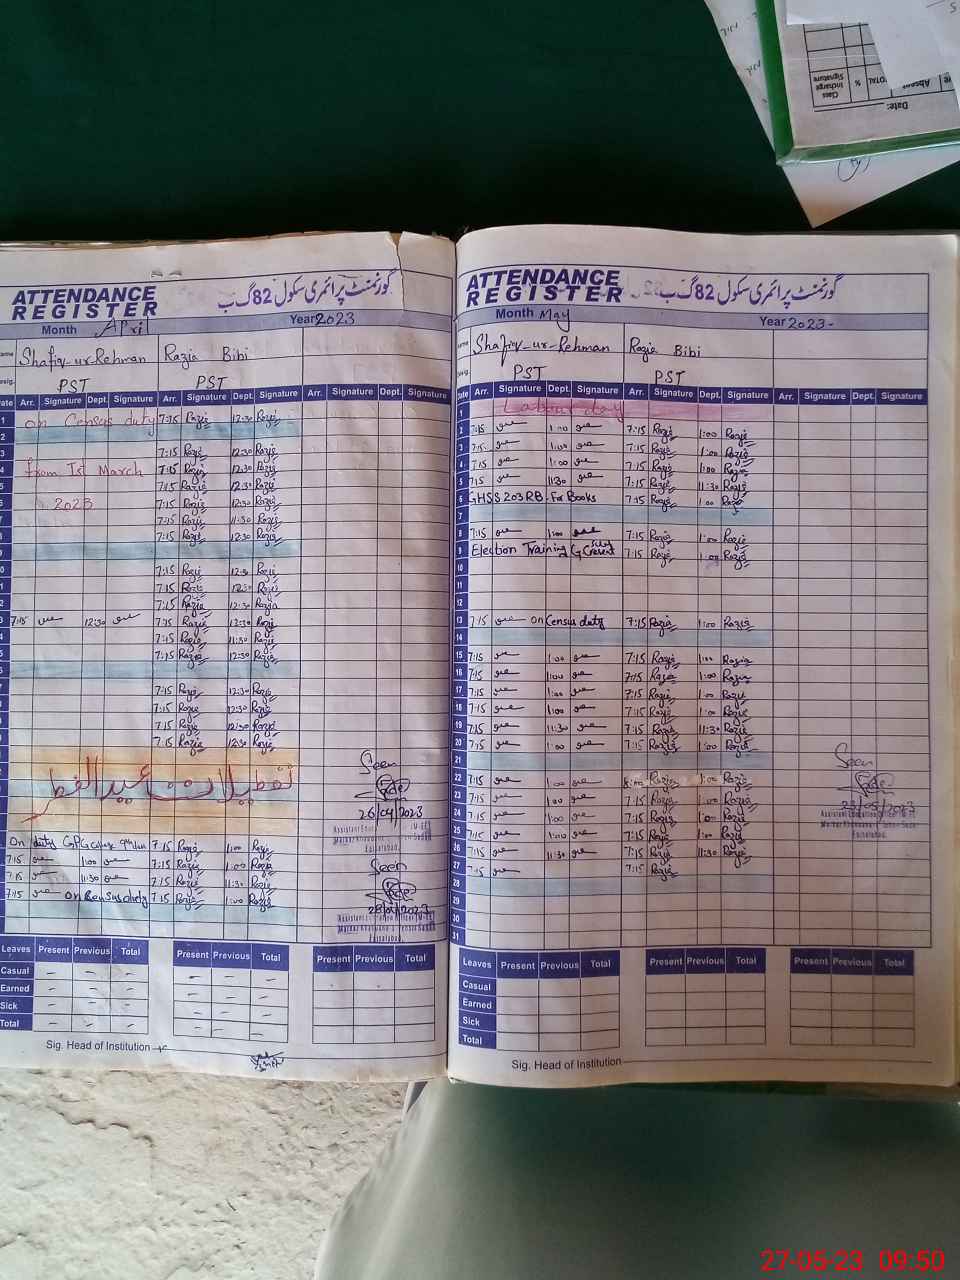 Class Incharge Signature
%
TOTAL
Absent
Date:
ATTENDANCE REGISTER
گورنمنٹ پرائمری سکول 82 گ ب
Month April
Year 2023
Shafiq-ur-Rehman Razia Bibi
PST PST
Date Arr. Signature Dept. Signature Arr. Signature Dept. Signature Arr. Signature Dept. Signature
1 on Census duty 7:15 Razia 12:30 Razia
2
3 7:15 Razia 12:30 Razia
4 from Ist March 7:15 Razia 12:30 Razia
5 7:15 Razia 12:30 Razia
6 2023 7:15 Razia 12:30 Razia
7:15 Razia 11:30 Razia
7:15 Razia 12:30 Razia
7:15 Razia 12:30 Razia
7:15 Razia 12:30 Razia
7:15 Razia 12:30 Razia
7:15 12:30 7:15 Razia 12:30 Razia
7:15 Razia 11:30 Razia
7:15 Razia 12:30 Razia
7:15 Razia 12:30 Razia
7:15 Razia 12:30 Razia
7:15 Razia 12:30 Razia
7:15 Razia 12:30 Razia
تعطیلات عید الفطر
Seen
26/04/2023
Faisalabad.
On duty 7:15 Razia 1:00 Razia
7:15 1:00 7:15 Razia 1:00 Razia
7:15 11:30 7:15 Razia 11:30 Razia
7:15 on Census duty 7:15 Razia 1:00 Razia
Seen
28/04/2023
Faisalabad.
Leaves Present Previous Total Present Previous Total Present Previous Total
Casual - - - - - -
Earned - - - - - -
Sick - - - - - -
Total - - - - - -
Sig. Head of Institution
ATTENDANCE REGISTER
گورنمنٹ پرائمری سکول 82 گ ب
Month May
Year 2023-
Shafiq-ur-Rehman Razia Bibi
PST PST
Date Arr. Signature Dept. Signature Arr. Signature Dept. Signature Arr. Signature Dept. Signature
1 Labour day
2 7:15 1:00 7:15 Razia 1:00 Razia
3 7:15 1:00 7:15 Razia 1:00 Razia
4 7:15 1:00 7:15 Razia 1:00 Razia
5 7:15 11:30 7:15 Razia 11:30 Razia
6 GHSS 203 RB For Books 7:15 Razia 1:00 Razia
7
8 7:15 1:00 7:15 Razia 1:00 Razia
9 Election Training 7:15 Razia 1:00 Razia
10
11
12
13 7:15 on Census duty 7:15 Razia 1:00 Razia
14
15 7:15 1:00 7:15 Razia 1:00 Razia
16 7:15 1:00 7:15 Razia 1:00 Razia
17 7:15 1:00 7:15 Razia 1:00 Razia
18 7:15 1:00 7:15 Razia 1:00 Razia
19 7:15 11:30 7:15 Razia 11:30 Razia
20 7:15 1:00 7:15 Razia 1:00 Razia
21
22 7:15 1:00 Razia 1:00 Razia
23 7:15 1:00 7:15 Razia 1:00 Razia
24 7:15 1:00 7:15 Razia 1:00 Razia
25 7:15 1:00 7:15 Razia 1:00 Razia
26 7:15 11:30 7:15 Razia 11:30 Razia
27 7:15 7:15 Razia
28
29
30
31
Seen
Faisalabad.
Leaves Present Previous Total Present Previous Total Present Previous Total
Casual
Earned
Sick
Total
Sig. Head of Institution
27-05-23 09:50